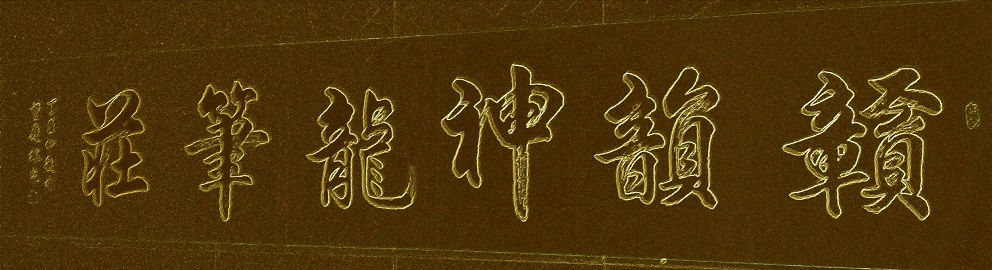 贛韻神龍筆莊